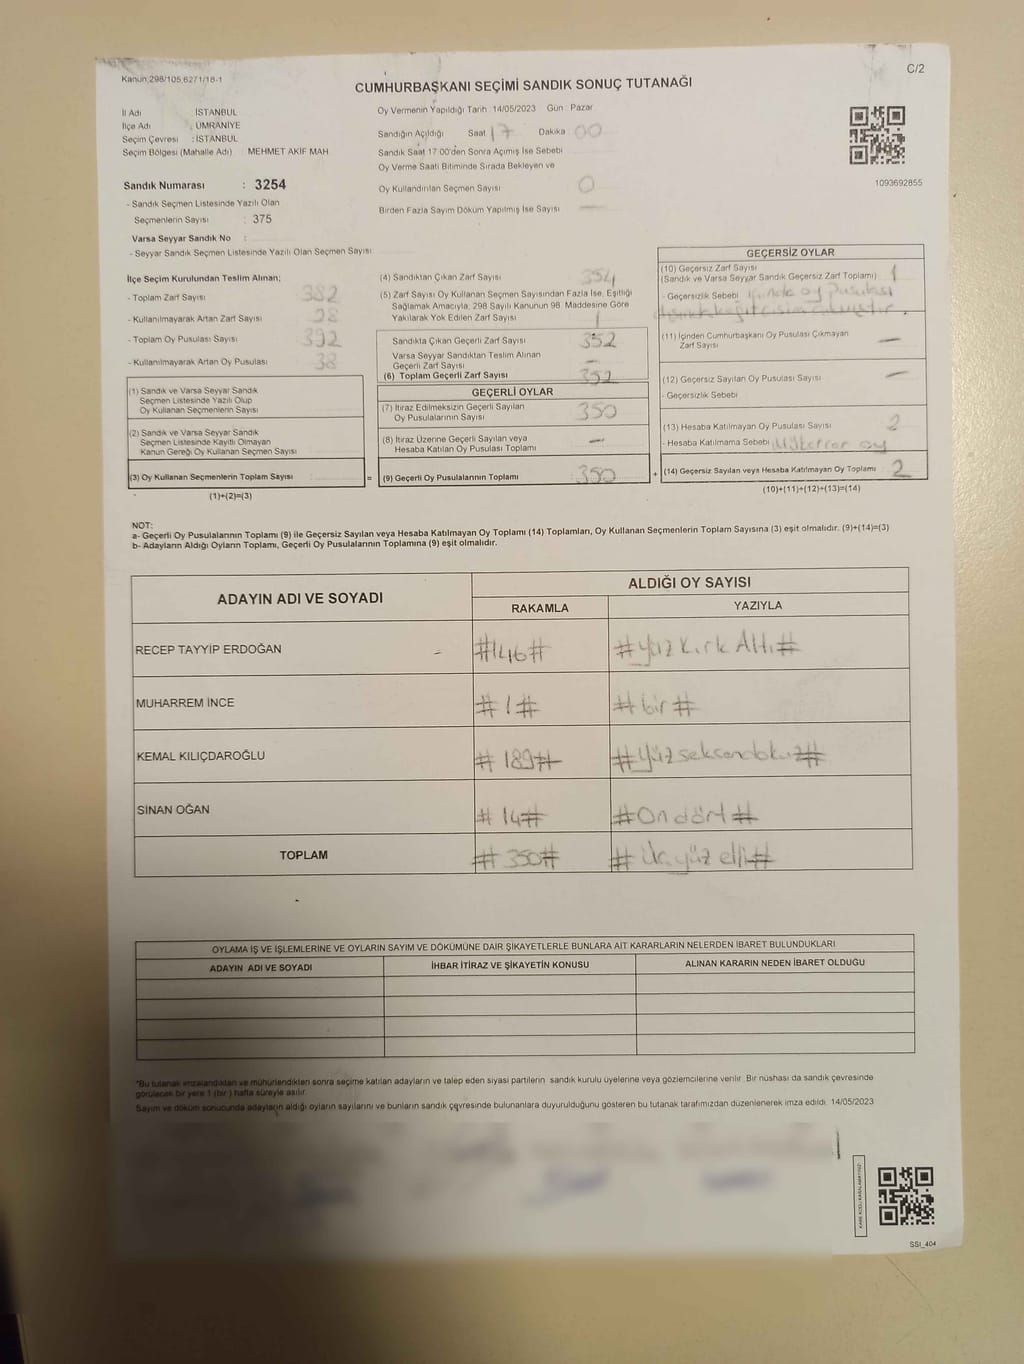 Kanun:298/105,6271/18-1
C/2
CUMHURBAŞKANI SEÇİMİ SANDIK SONUÇ TUTANAĞI
İl Adı : İSTANBUL
İlçe Adı : ÜMRANİYE
Seçim Çevresi : İSTANBUL
Seçim Bölgesi (Mahalle Adı) : MEHMET AKİF MAH.
Sandık Numarası : 3254
- Sandık Seçmen Listesinde Yazılı Olan
Seçmenlerin Sayısı : 375
Varsa Seyyar Sandık No :
- Seyyar Sandık Seçmen Listesinde Yazılı Olan Seçmen Sayısı :
Oy Vermenin Yapıldığı Tarih 14/05/2023 Gün Pazar
Sandığın Açıldığı Saat 17 Dakika 00
Sandık Saat 17:00'den Sonra Açımış İse Sebebi
Oy Verme Saati Bitiminde Sırada Bekleyen ve
Oy Kullandırılan Seçmen Sayısı 0
Birden Fazla Sayım Döküm Yapılmış İse Sayısı —
1093692855
İlçe Seçim Kurulundan Teslim Alınan;
- Toplam Zarf Sayısı 382
- Kullanılmayarak Artan Zarf Sayısı 28
- Toplam Oy Pusulası Sayısı 392
- Kullanılmayarak Artan Oy Pusulası 38
(1) Sandık ve Varsa Seyyar Sandık
Seçmen Listesinde Yazılı Olup
Oy Kullanan Seçmenlerin Sayısı
(2) Sandık ve Varsa Seyyar Sandık
Seçmen Listesinde Kayıtlı Olmayan
Kanun Gereği Oy Kullanan Seçmen Sayısı
(3) Oy Kullanan Seçmenlerin Toplam Sayısı =
(1)+(2)=(3)
(4) Sandıktan Çıkan Zarf Sayısı 354
(5) Zarf Sayısı Oy Kullanan Seçmen Sayısından Fazla İse, Eşitliği
Sağlamak Amacıyla, 298 Sayılı Kanunun 98. Maddesine Göre
Yakılarak Yok Edilen Zarf Sayısı 1
Sandıkta Çıkan Geçerli Zarf Sayısı 352
Varsa Seyyar Sandıktan Teslim Alınan
Geçerli Zarf Sayısı —
(6) Toplam Geçerli Zarf Sayısı 352
GEÇERLİ OYLAR
(7) İtiraz Edilmeksizin Geçerli Sayılan
Oy Pusulalarının Sayısı 350
(8) İtiraz Üzerine Geçerli Sayılan veya
Hesaba Katılan Oy Pusulası Toplamı —
(9) Geçerli Oy Pusulalarının Toplamı 350 +
GEÇERSİZ OYLAR
(10) Geçersiz Zarf Sayısı
(Sandık ve Varsa Seyyar Sandık Geçersiz Zarf Toplamı) 1
- Geçersizlik Sebebi içinde oy pusulası
(11) İçinden Cumhurbaşkanı Oy Pusulası Çıkmayan
Zarf Sayısı —
(12) Geçersiz Sayılan Oy Pusulası Sayısı —
- Geçersizlik Sebebi
(13) Hesaba Katılmayan Oy Pusulası Sayısı 2
- Hesaba Katılmama Sebebi Mükerrer oy
(14) Geçersiz Sayılan veya Hesaba Katılmayan Oy Toplamı 2
(10)+(11)+(12)+(13)=(14)
NOT:
a- Geçerli Oy Pusulalarının Toplamı (9) ile Geçersiz Sayılan veya Hesaba Katılmayan Oy Toplamı (14) Toplamları, Oy Kullanan Seçmenlerin Toplam Sayısına (3) eşit olmalıdır. (9)+(14)=(3)
b- Adayların Aldığı Oyların Toplamı, Geçerli Oy Pusulalarının Toplamına (9) eşit olmalıdır.
ADAYIN ADI VE SOYADI
ALDIĞI OY SAYISI
RAKAMLA YAZIYLA
RECEP TAYYİP ERDOĞAN #146# #Yüz Kırk Altı#
MUHARREM İNCE #1# #bir#
KEMAL KILIÇDAROĞLU #189# #Yüz seksendokuz#
SİNAN OĞAN #14# #On dört#
TOPLAM #350# #Üç yüz elli#
OYLAMA İŞ VE İŞLEMLERİNE VE OYLARIN SAYIM VE DÖKÜMÜNE DAİR ŞİKAYETLERLE BUNLARA AİT KARARLARIN NELERDEN İBARET BULUNDUKLARI
ADAYIN ADI VE SOYADI İHBAR İTİRAZ VE ŞİKAYETİN KONUSU ALINAN KARARIN NEDEN İBARET OLDUĞU
*Bu tutanak imzalandıktan ve mühürlendikten sonra seçime katılan adayların ve talep eden siyasi partilerin sandık kurulu üyelerine veya gözlemcilerine verilir. Bir nüshası da sandık çevresinde
görülecek bir yere 1 (bir) hafta süreyle asılır.
Sayım ve döküm sonucunda adayların aldığı oyların sayılarını ve bunların sandık çevresinde bulunanlara duyurulduğunu gösteren bu tutanak tarafımızdan düzenlenerek imza edildi. 14/05/2023
SSI_404